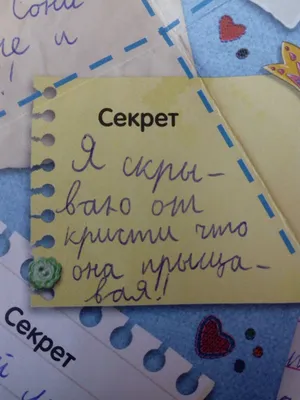 Сони
не и
!
Секрет
Я скры-
ваю от
кристи что
она прыща-
вая!!
Секрет